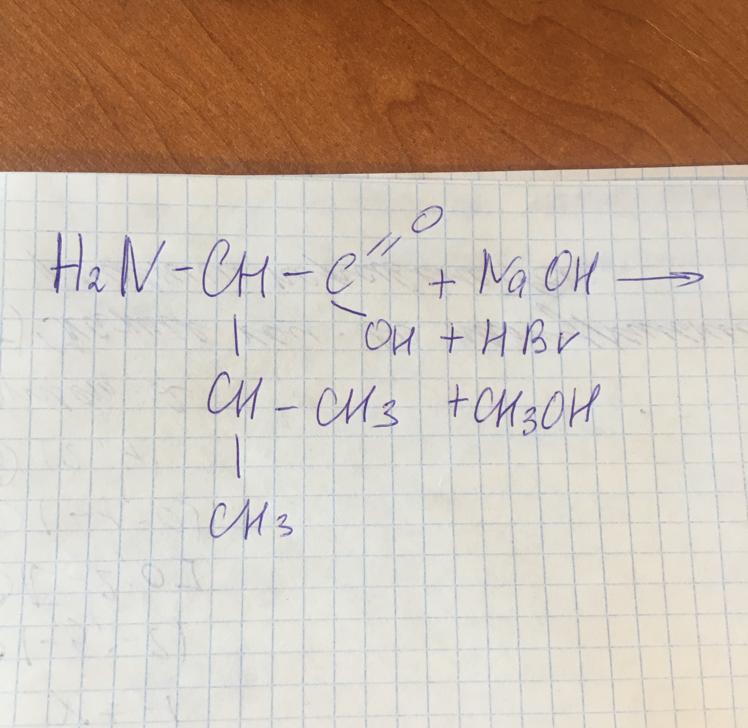 O
H₂N-CH-C + NaOH →
OH + HBr
CH-CH₃ +CH₃OH
CH₃